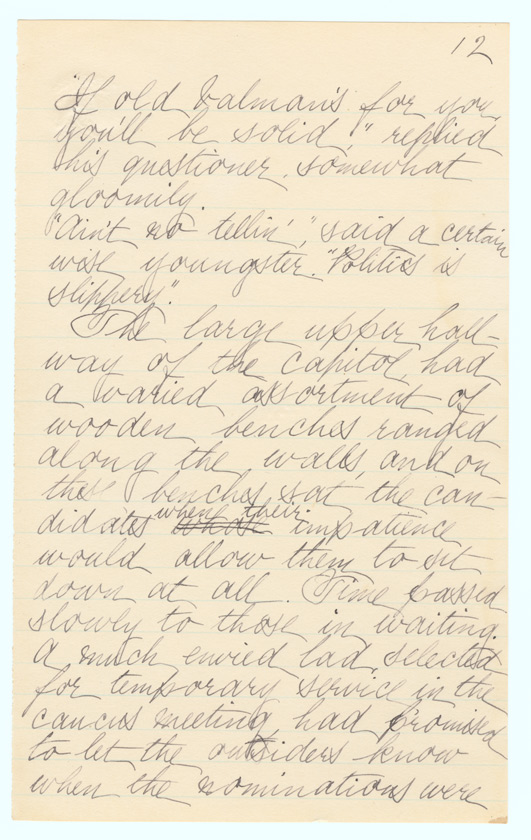 12
"If old Valman's for you,
you'll be solid," replied
his questioner, somewhat
gloomily.
"Ain't no tellin'," said a certain
wise youngster. "Politics is
slippery."
The large upper hall-
way of the capitol, had
a varied assortment of
wooden benches ranged
along the walls, and on
these benches sat the can-
didates when their whose impatience
would allow them to sit
down at all. Time passed
slowly to those in waiting.
A much envied lad, selected
for temporary service in the
caucus meeting had promised
to let the outsiders know
when the nominations were